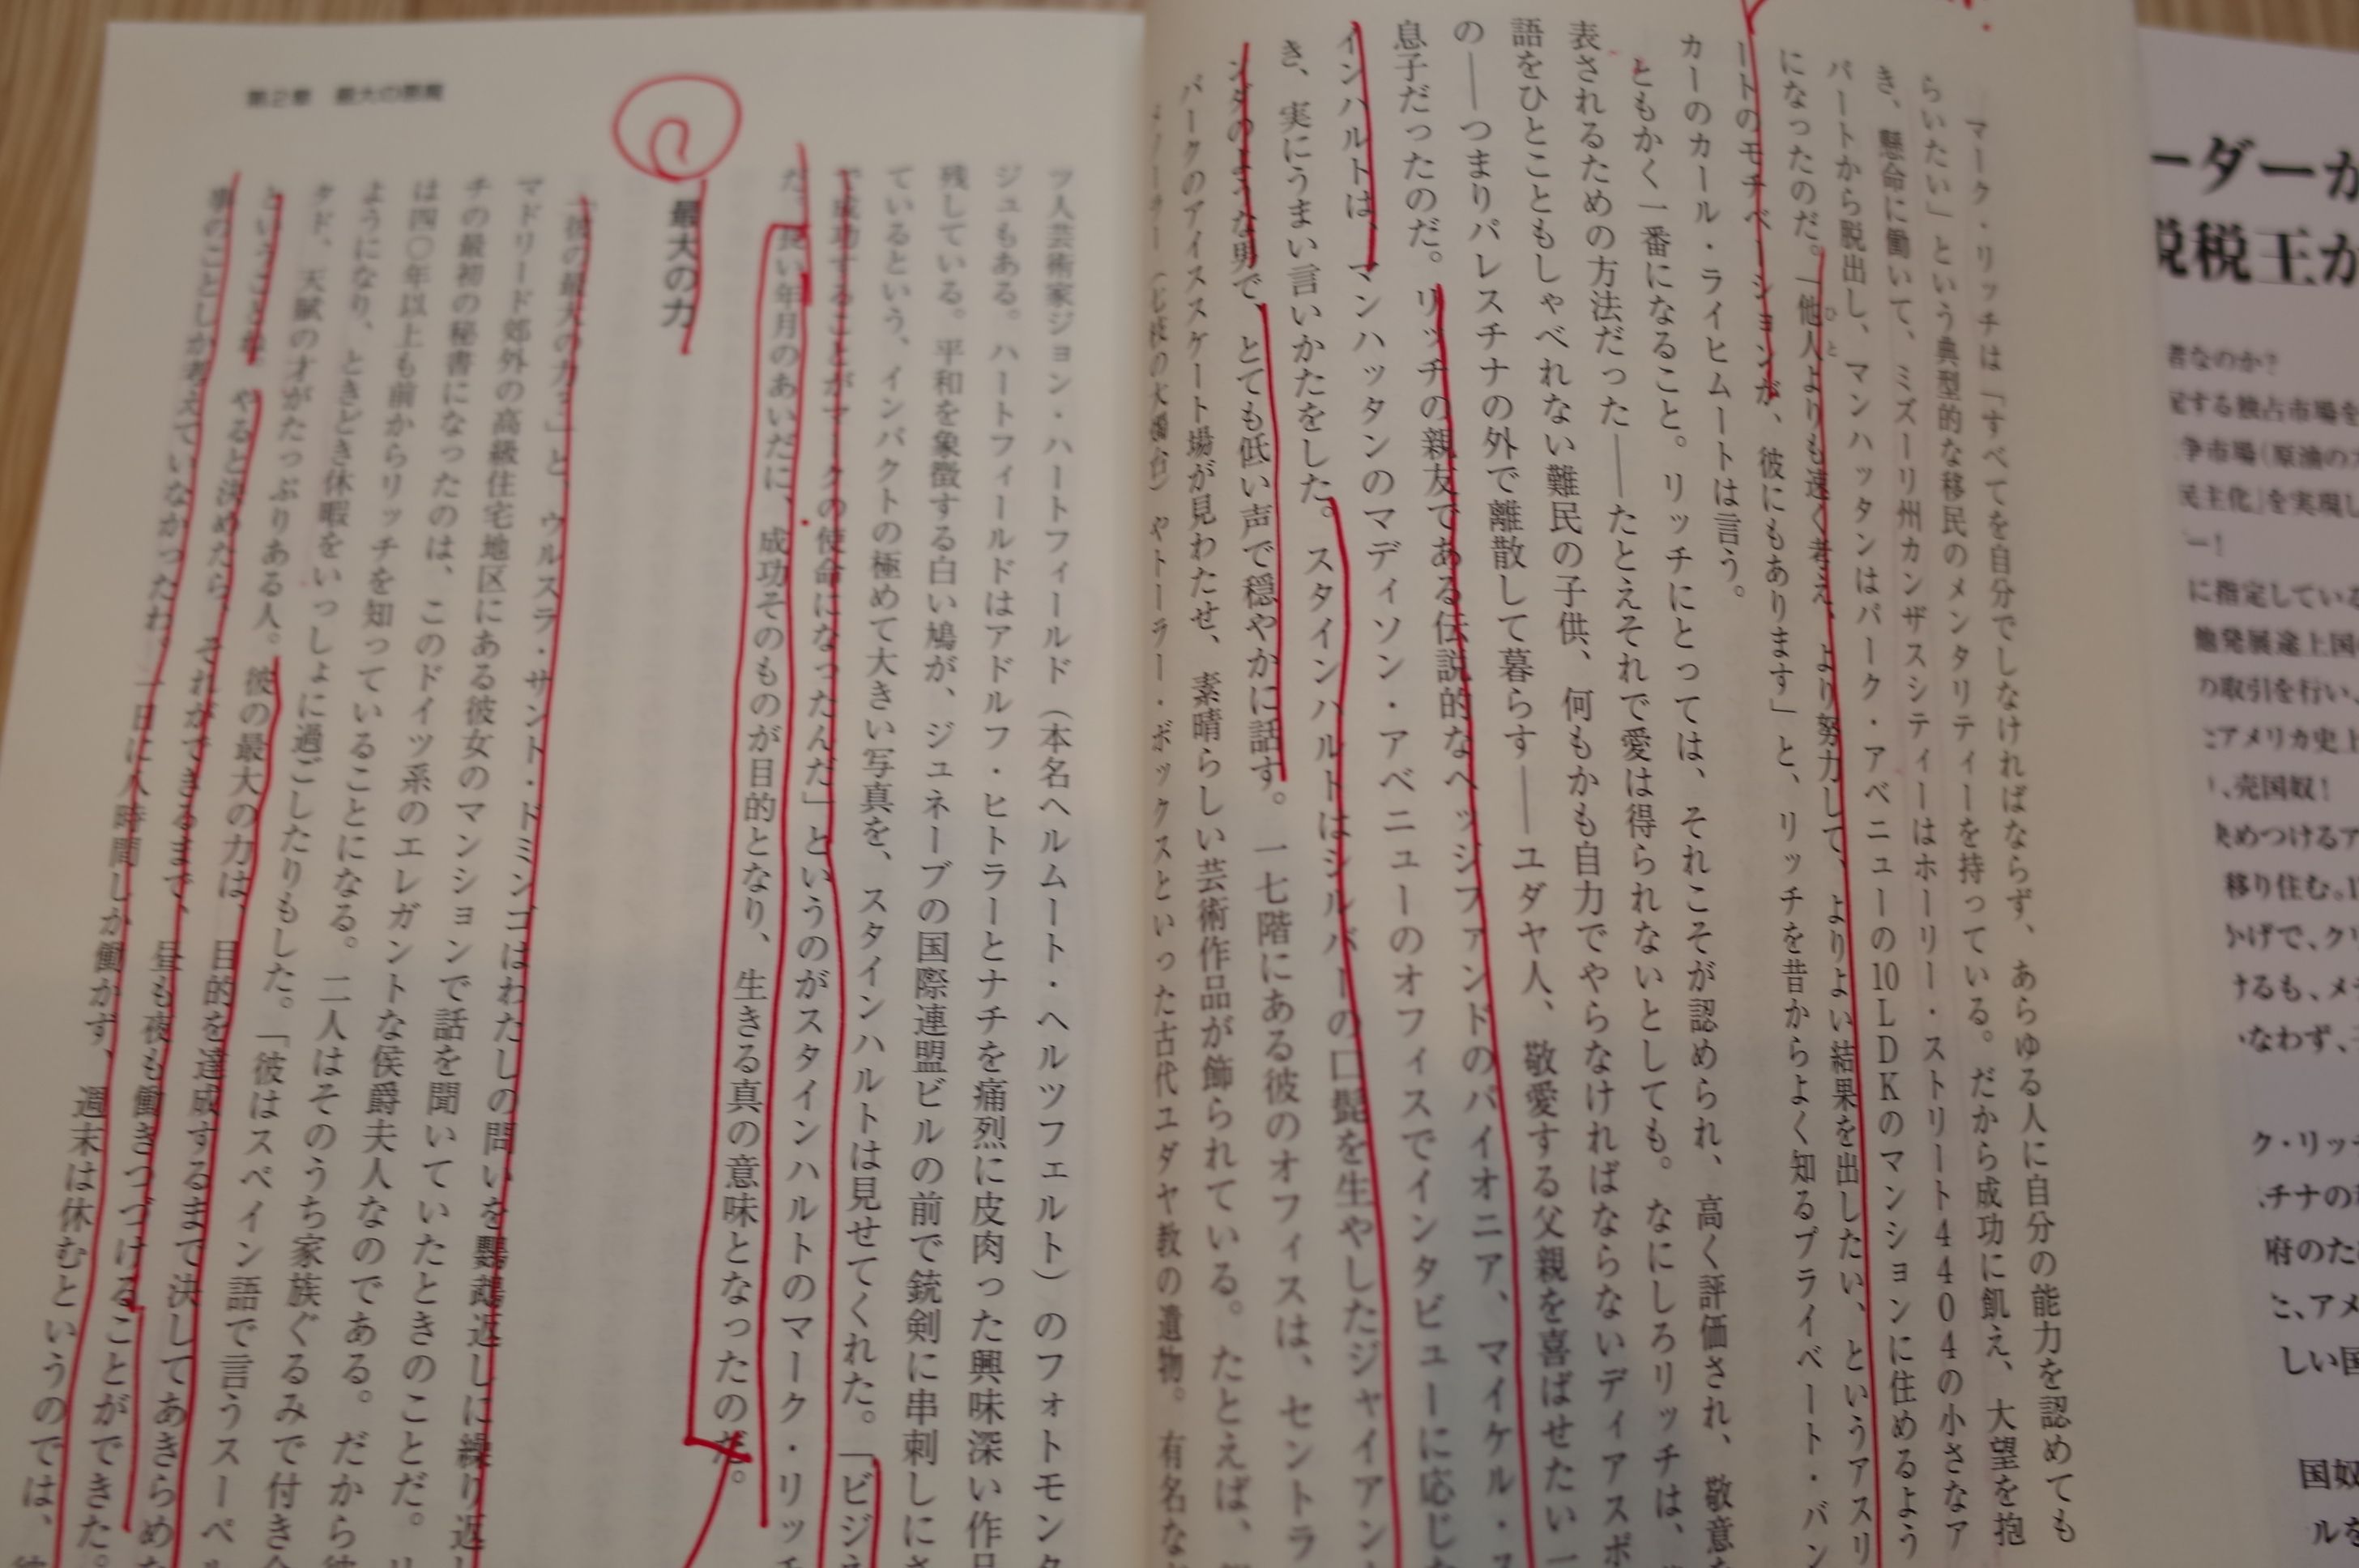 マーク・リッチは「すべてを自分でしなければならず、あらゆる人に自分の能力を認めても
らいたい」という典型的な移民のメンタリティーを持っている。だから成功に飢え、大望を抱
き、懸命に働いて、ミズーリ州カンザスシティーはホーリー・ストリート4404の小さなア
パートから脱出し、マンハッタンはパーク・アベニューの10LDKのマンションに住めるよう
になったのだ。「他人よりも速く考え、より努力して、よりよい結果を出したい、というアスリ
ートのモチベーションが、彼にもあります」と、リッチを昔からよく知るプライベート・バン
カーのカール・ライヒムートは言う。
ともかく一番になること。リッチにとっては、それこそが認められ、高く評価され、敬意
表されるための方法だった――たとえそれで愛は得られないとしても。なにしろリッチは、
語をひとこともしゃべれない難民の子供、何もかも自力でやらなければならないディアスポ
の――つまりパレスチナの外で離散して暮らす――ユダヤ人、敬愛する父親を喜ばせたい一
息子だったのだ。リッチの親友である伝説的なヘッジファンドのパイオニア、マイケル・ス
インハルトは、マンハッタンのマディソン・アベニューのオフィスでインタビューに応じ
き、実にうまい言いかたをした。スタインハルトはシルバーの口髭を生やしたジャイアン
ンダのような男で、とても低い声で穏やかに話す。一七階にある彼のオフィスは、セントラ
パークのアイススケート場が見わたせ、素晴らしい芸術作品が飾られている。たとえば、
やトーラー・ボックスといった古代ユダヤ教の遺物。有名な
第2章 最大の悪魔
ツ人芸術家ジョン・ハートフィールド(本名ヘルムート・ヘルツフェルト)のフォトモンタ
ジュもある。ハートフィールドはアドルフ・ヒトラーとナチを痛烈に皮肉った興味深い作品
残している。平和を象徴する白い鳩が、ジュネーブの国際連盟ビルの前で銃剣に串刺しにさ
ているという、インパクトの極めて大きい写真を、スタインハルトは見せてくれた。「ビジネ
で成功することがマークの使命になったんだ」というのがスタインハルトのマーク・リッチ
だ。長い年月のあいだに、成功そのものが目的となり、生きる真の意味となったのだ。
最大の力
「彼の最大の力？」と、ウルスラ・サント・ドミンゴはわたしの問いを鸚鵡返しに繰り返し
マドリード郊外の高級住宅地区にある彼女のマンションで話を聞いていたときのことだ。リ
チの最初の秘書になったのは、このドイツ系のエレガントな侯爵夫人なのである。だから彼
は四〇年以上も前からリッチを知っていることになる。二人はそのうち家族ぐるみで付き合
ようになり、ときどき休暇をいっしょに過ごしたりもした。「彼はスペイン語で言うスーペル
タド、天賦の才がたっぷりある人。彼の最大の力は、目的を達成するまで決してあきらめな
ということね。やると決めたら、それができるまで、昼も夜も働きつづけることができた。
事のことしか考えていなかったわ。一日に八時間しか働かず、週末は休むというのでは、彼
ーダーか
脱税王か
者なのか?
する独占市場を
争市場(原油の
民主化」を実現し
ー!
に指定している
他発展途上国
の取引を行い、
アメリカ史上
、売国奴!
決めつけるア
移り住む。
かげで、クリ
けるも、メデ
いなわず、
ク・リッ
チナの
府のた
、アメ
しい国
国奴
ルを